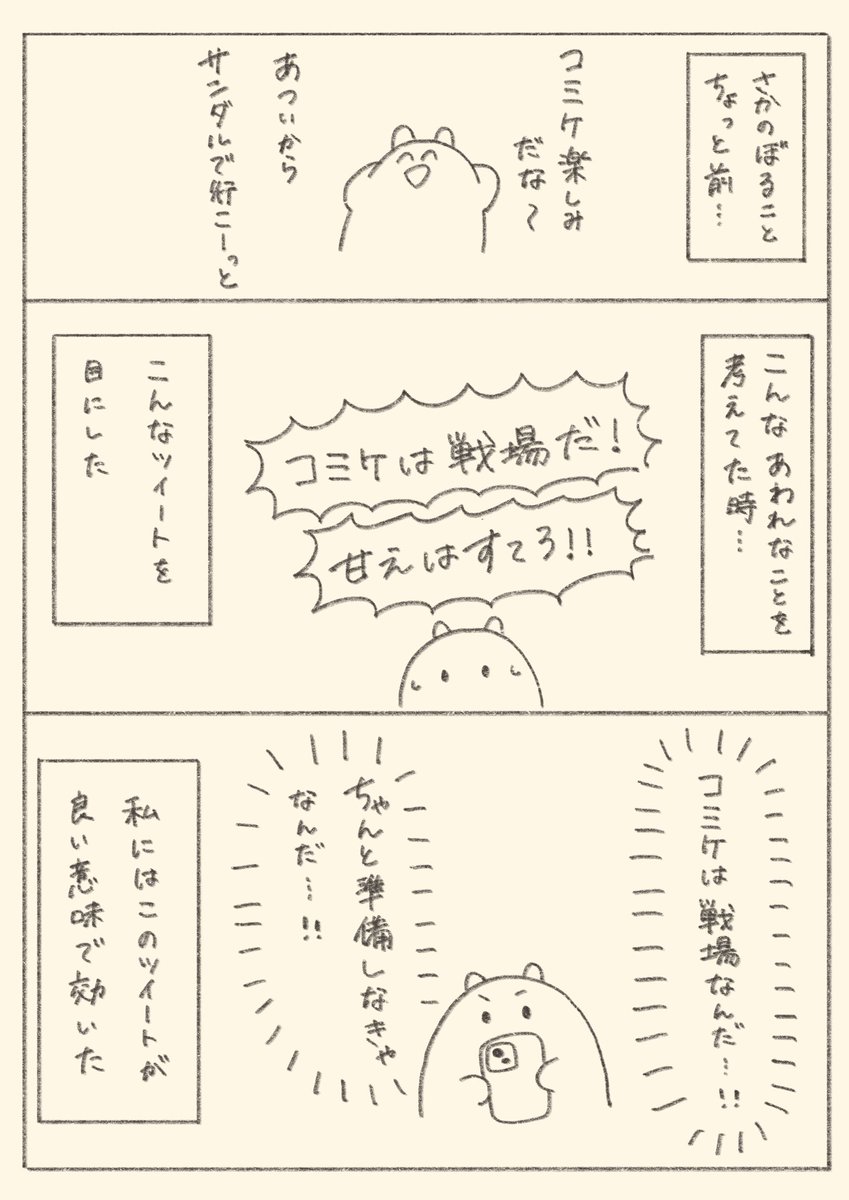 さかのぼること
ちょっと前…
コミケ楽しみ
だな〜
あついから
サンダルで行こーっと
こんなあわれなことを
考えてた時…
コミケは戦場だ!
甘えはすてろ!!
こんなツイートを
目にした
コミケは戦場なんだ…!!
ちゃんと準備しなきゃ
なんだ…!!
私にはこのツイートが
良い意味で効いた